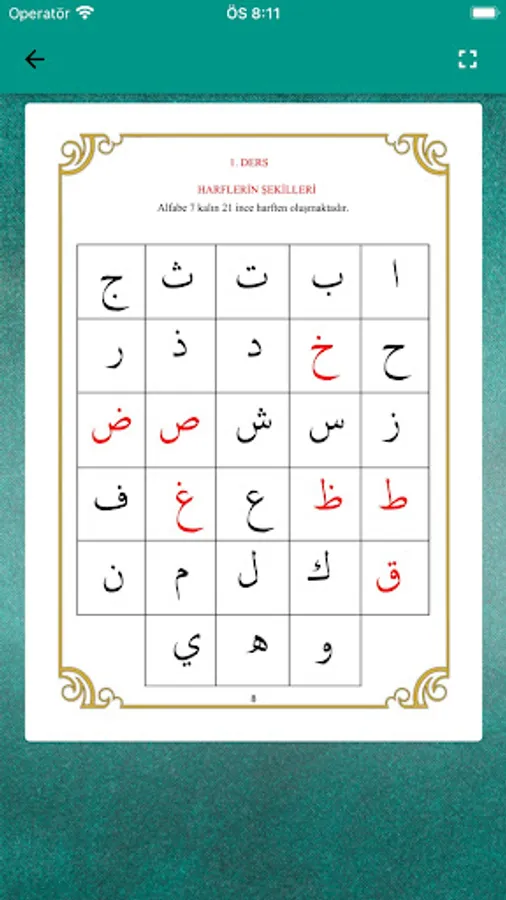 Operatör ÖS 8:11
1. DERS
HARFLERİN ŞEKİLLERİ
Alfabe 7 kalın 21 ince harften oluşmaktadır.
ا ب ت ث ج
ح خ د ذ ر
ز س ش ص ض
ط ظ ع غ ف
ق ك ل م ن
و ه ي
8